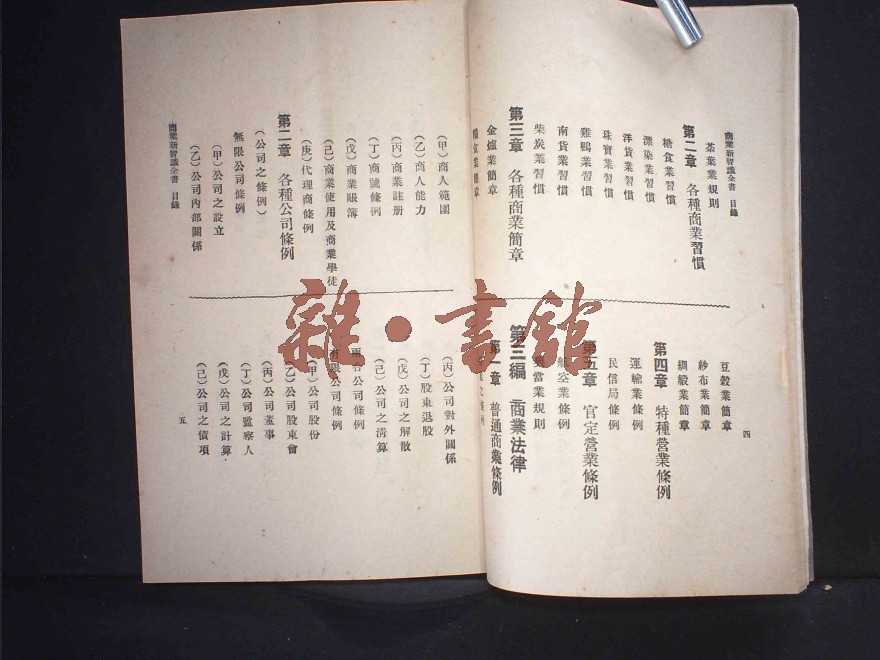 商業新智識全書 目錄
茶葉業規則
第二章 各種商業習慣
糖食業習慣
漂染業習慣
洋貨業習慣
珠寶業習慣
雞鴨業習慣
南貨業習慣
柴炭業習慣
第三章 各種商業簡章
金爐業簡章
糧食業簡章
豆穀業簡章
紗布業簡章
綢緞業簡章
第四章 特種營業條例
運輸業條例
民信局條例
第五章 官定營業條例
航空業條例
當業規則
第三編 商業法律
第一章 普通商業條例
四
(甲)商人範圍
(乙)商人能力
(丙)商業註册
(丁)商號條例
(戊)商業賬簿
(己)商業使用及商業學徒
(庚)代理商條例
第二章 各種公司條例
(公司之條例)
無限公司條例
(甲)公司之設立
(乙)公司內部關係
商業新智識全書 目錄
(丙)公司對外關係
(丁)股東退股
(戊)公司之解散
(己)公司之清算
兩合公司條例
有限公司條例
(甲)公司股份
(乙)公司股東會
(丙)公司董事
(丁)公司監察人
(戊)公司之計算
(己)公司之債項
五
雜·書館